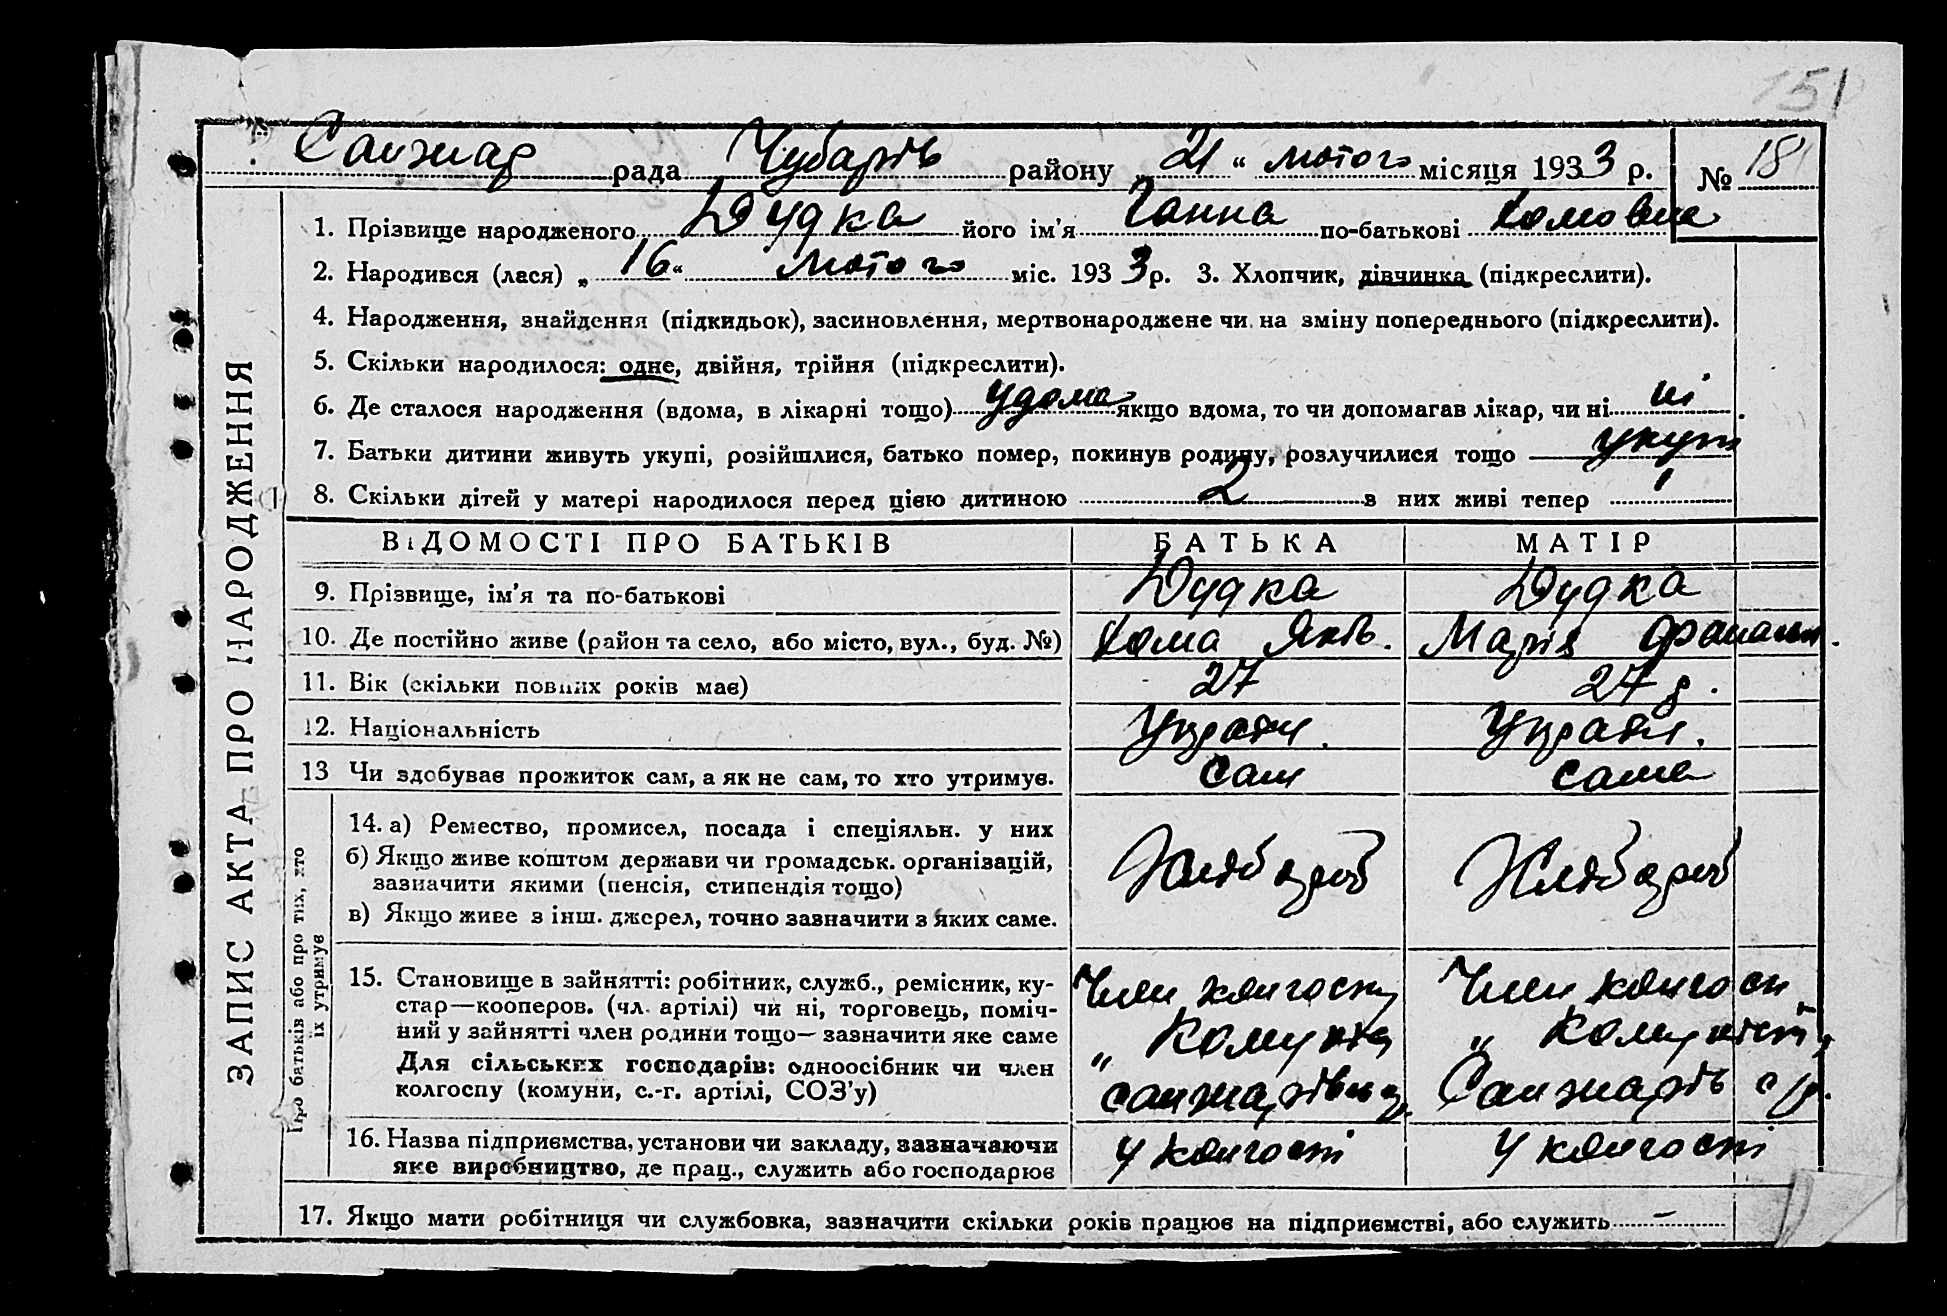 151
Санжар рада Чубарів району „ 21 “ лютого місяця 1933 р. № 18
1. Прізвище народженого Дудка його ім'я Ганна по-батькові Хомовна
2. Народився (лася) „ 16 “ лютого міс. 1933 р. 3. Хлопчик, дівчинка (підкреслити).
4. Народження, знайдення (підкидьок), засиновлення, мертвонароджене чи на зміну попереднього (підкреслити).
5. Скільки народилося: одне, двійня, трійня (підкреслити).
6. Де сталося народження (вдома, в лікарні тощо) удома якщо вдома, то чи допомагав лікар, чи ні ні
7. Батьки дитини живуть укупі, розійшлися, батько помер, покинув родину, розлучилися тощо укупі
8. Скільки дітей у матері народилося перед цією дитиною 2 з них живі тепер 1
ЗАПИС АКТА ПРО НАРОДЖЕННЯ
ВІДОМОСТІ ПРО БАТЬКІВ БАТЬКА МАТІР
9. Прізвище, ім'я та по-батькові Дудка Дудка
10. Де постійно живе (район та село, або місто, вул., буд. №) Хома Яків. Марія
11. Вік (скільки повних років має) 27 27 р.
12. Національність Україн. Україн.
13 Чи здобуває прожиток сам, а як не сам, то хто утримує. сам сама
Про батьків або про тих, хто
їх утримує
14. а) Ремество, промисел, посада і спеціяльн. у них
б) Якщо живе коштом держави чи громадськ. організацій,
зазначити якими (пенсія, стипендія тощо)
в) Якщо живе з інш. джерел, точно зазначити з яких саме.
Хлібороб Хлібороб
15. Становище в зайнятті: робітник, служб., ремісник, ку-
стар—кооперов. (чл. артілі) чи ні, торговець, поміч-
ний у зайнятті член родини тощо— зазначити яке саме
Для сільських господарів: одноосібник чи член
колгоспу (комуни, с.-г. артілі, СОЗ'у)
Член колгоспу Член колгосп
„ „
Санжарів с/р.
16. Назва підприємства, установи чи закладу, зазначаючи
яке виробництво, де прац., служить або господарює
У колгоспі У колгоспі
17. Якщо мати робітниця чи службовка, зазначити скільки років працює на підприємстві, або служить —